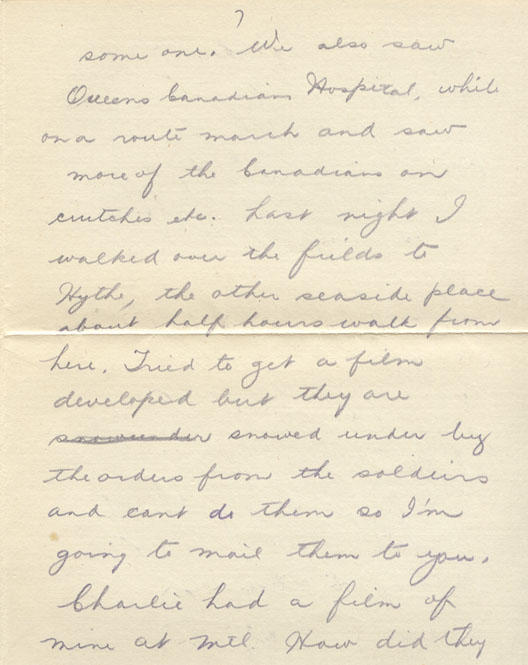 7
some one. We also saw
Queens Canadian Hospital, while
on a route march and saw
more of the Canadians on
crutches etc. Last night I
walked over the fields to
Hythe, the other seaside place
about half hours walk from
here. Tried to get a film
developed but they are
snowunder snowed under by
the orders from the soldiers
and cant do them so I'm
going to mail them to you.
Charlie had a film of
mine at Mtl. How did they